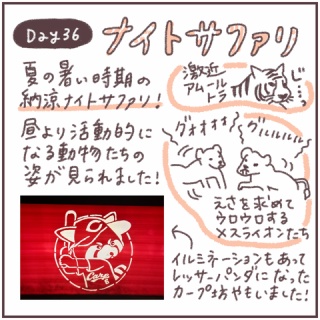 Day36
ナイトサファリ
夏の暑い時期の
納涼ナイトサファリ!
昼より活動的に
なる動物たちの
姿が見られました!
激近
アムール
トラ
じーっ
グオオオオ
グルルルル
えさを求めて
ウロウロする
メスライオンたち
イルミネーションもあって
レッサーパンダになった
カープ坊やもいました!
Carp